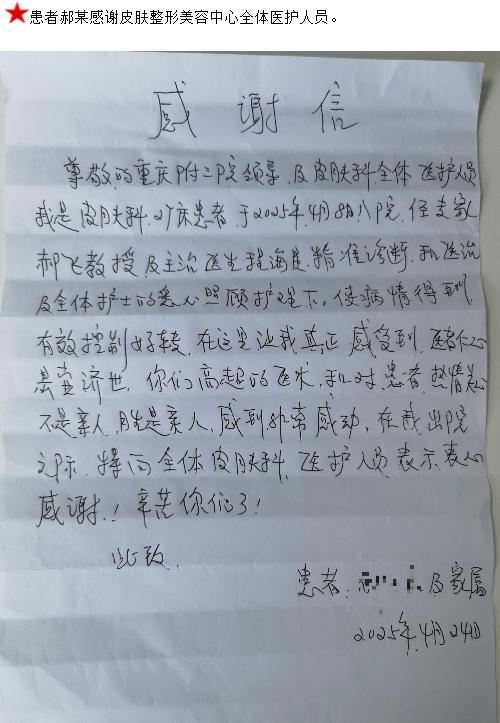 患者郝某感谢皮肤整形美容中心全体医护人员。
感谢信
尊敬的重庆附二院领导及皮肤科全体医护人员
我是皮肤科27床患者,于2025年4月8日入院,经专家
郝飞教授及主治医生程海星精准诊断和医治
及全体护士的爱心照顾护理下,使病情得到
有效控制好转,在这里让我真正感受到,医者仁心
悬壶济世,你们高超的医术,和对患者热情关心
不是亲人胜是亲人,感到非常感动,在我出院
之际,特向全体皮肤科医护人员表示衷心
感谢!辛苦你们了!
此致
患者: 及家属
2025年4月24日